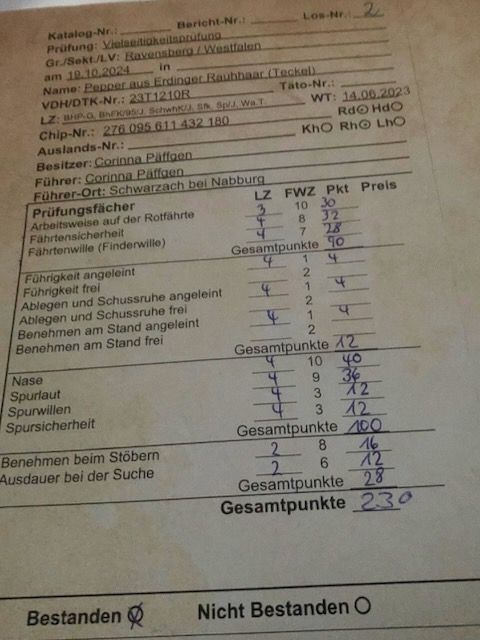 Katalog-Nr.: Bericht-Nr.: Los-Nr.: 2
Prüfung: Vielseitigkeitsprüfung
Gr./Sekt./LV: Ravensberg / Westfalen
am 19.10.2024 in
Name: Pepper aus Erdinger Rauhhaar (Teckel)
VDH/DTK-Nr.: 23T1210R Tato-Nr.:
LZ: BHP-G, BhFK/95/J, SchwhK/J, Sfk, Sp/J, Wa.T. WT: 14.06.2023
Chip-Nr.: 276 095 611 432 180 Rd Hd
Auslands-Nr.: Kh Rh Lh
Besitzer: Corinna Päffgen
Führer: Corinna Päffgen
Führer-Ort: Schwarzach bei Nabburg
Prüfungsfächer LZ FWZ Pkt Preis
Arbeitsweise auf der Rotfährte 3 10 30
Fährtensicherheit 4 8 32
Fährtenwille (Finderwille) 4 7 28
Gesamtpunkte 90
Führigkeit angeleint 4 1 4
Führigkeit frei 2
Ablegen und Schussruhe angeleint 4 1 4
Ablegen und Schussruhe frei 2
Benehmen am Stand angeleint 4 1 4
Benehmen am Stand frei 2
Gesamtpunkte 12
Nase 4 10 40
Spurlaut 4 9 36
Spurwillen 4 3 12
Spursicherheit 4 3 12
Gesamtpunkte 100
Benehmen beim Stöbern 2 8 16
Ausdauer bei der Suche 2 6 12
Gesamtpunkte 28
Gesamtpunkte 230
Bestanden Nicht Bestanden